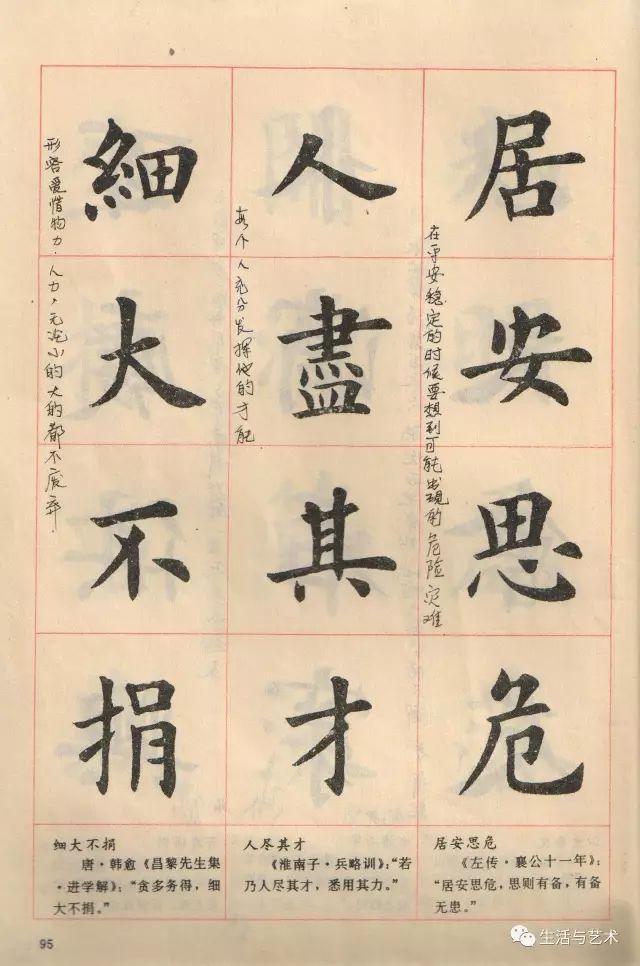 居安思危
在平安稳定的时候要想到可能出现的危险灾难
人盡其才
每个人充分发挥他的才能
細大不捐
形容爱惜物力·人力，无论小的大的都不废弃·
居安思危
《左传·襄公十一年》：
“居安思危，思则有备，有备
无患。”
人尽其才
《淮南子·兵略训》：“若
乃人尽其才，悉用其力。”
细大不捐
唐·韩愈《昌黎先生集
·进学解》：“贪多务得，细
大不捐。”
95
生活与艺术